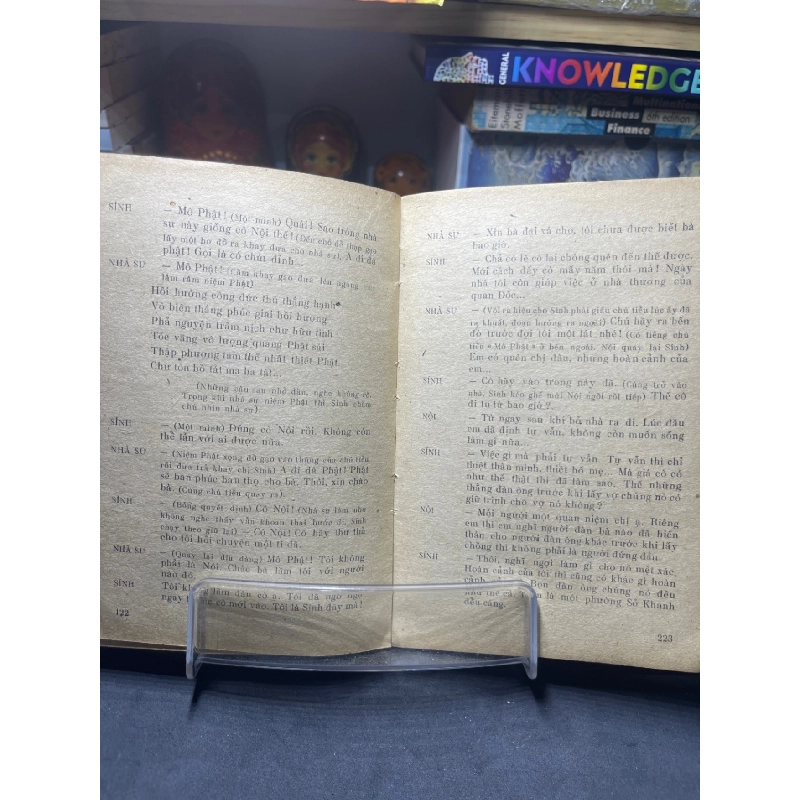 GENERAL
KNOWLEDGE
Business
6th edition
Finance
SÍNH
— Mô Phật! (Một mình) Quái! Sao trông nhà
sư này giống cô Nội thế! (Đến chỗ để thập gạo
lấy một bơ đổ ra khay đưa cho nhà sư). A di đà
phật! Gọi là có chút đỉnh...
NHÀ SƯ
— Mô Phật! (Cầm khay gạo đưa lên ngang mặt
lầm rầm niệm Phật)
Hồi hướng công đức thù thắng hạnh
Vô biên thắng phúc giai hồi hương
Phả nguyện trầm nịch chư hữu tình
Tốc vãng vô lượng quang Phật sái
Thập phương tam thế nhất thiết Phật
Chư tôn bồ tát ma ha tát...
(Những câu sau nhỏ dần, nghe không rõ.
Trong khi nhà sư niệm Phật thì Sính chăm
chú nhìn nhà sư)
SÍNH
— (Một mình) Đúng cô Nội rồi. Không còn
thể lẫn với ai được nữa.
NHÀ SƯ
— (Niệm Phật xong đổ gạo vào thúng của chú tiểu
rồi đưa trả khay chị Sính) A di đà Phật! Phật
sẽ ban phúc ban thọ cho bà. Thôi, xin chào
bà. (Cùng chú tiểu quay ra).
SÍNH
— (Bỗng quyết định) Cô Nội! (Nhà sư làm như
không nghe thấy vẫn khoan thai bước đi. Sính
chạy theo giữ lại) — Cô Nội! Cô hãy thư thư
cho tôi hỏi chuyện một tí đã.
NHÀ SƯ
— (Quay lại dịu dàng) Mô Phật! Tôi không
phải là Nội. Chắc bà lầm tôi với người
nào đó.
SÍNH
Tôi không lầm đâu cô ạ. Tôi đã ngờ ngợ
ngay từ lúc cô mới vào. Tôi là Sính đây mà!
122
NHÀ SƯ
— Xin bà đại xá cho, tôi chưa được biết bà
bao giờ.
SÍNH
— Chả có lẽ cô lại chóng quên đến thế được.
Mới cách đây có mấy năm thôi mà! Ngày
nhà tôi còn giúp việc ở nhà thương của
quan Đốc...
NHÀ SƯ
— (Vội ra hiệu cho Sính phải giấu chú tiểu lúc ấy đã
ra khuất, đoạn hướng ra ngoài) Chú hãy ra bến
đò trước đợi tôi một lát nhé! (Có tiếng chú
tiểu «Mô Phật» ở bên ngoài. Nội quay lại Sính)
Em có quên chị đâu, nhưng hoàn cảnh của
em...
SÍNH
— Cô hãy vào trong này đã. (Cùng trở vào
nhà. Sính kéo ghế mời Nội ngồi rồi tiếp) Thế cô
đi tu từ bao giờ?
NỘI
— Từ ngay sau khi bỏ nhà ra đi. Lúc đầu
em đã định tự vẫn, không còn muốn sống
làm gì nữa...
SÍNH
— Việc gì mà phải tự vẫn. Tự vẫn thì chỉ
thiệt thân mình, thiệt bố mẹ... Mà giá có
như thế thật thì đã làm sao. Thế những
thằng đàn ông trước khi lấy vợ chúng nó có
giữ trinh cho vợ nó không?
NỘI
— Mỗi người một quan niệm chị ạ. Riêng
em thì em nghĩ người đàn bà nào đã hiến
thân cho người đàn ông khác trước khi lấy
chồng thì không phải là người đứng đắn.
SÍNH
— Thôi, nghĩ ngợi làm gì cho nó mệt xác.
Hoàn cảnh của tôi thì cũng có khác gì hoàn
cảnh Bọn đàn ông chúng nó đều
như thế cả, là một phường Sở Khanh
đểu cáng.
223